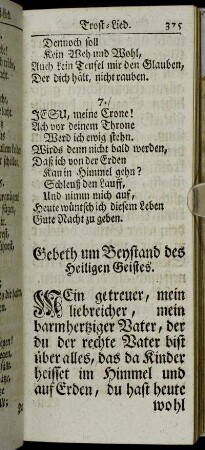 Trost-Lied. 375
Dennoch soll
Kein Weh und Wohl,
Auch kein Teufel mir den Glauben,
Der dich hält, nicht rauben.
7.
JESU, meine Crone!
Ach vor deinem Throne
Werd ich ewig stehn.
Wirds denn nicht bald werden,
Daß ich von der Erden
Kan in Himmel gehn?
Schleuß den Lauff,
Und nimm mich auf,
Heute wünsch ich diesem Leben
Gute Nacht zu geben.
Gebeth um Beystand des
Heiligen Geistes.
MEin getreuer, mein
liebreicher, mein
barmhertziger Vater, der
du der rechte Vater bist
über alles, das da Kinder
heisset im Himmel und
auf Erden, du hast heute
wohl